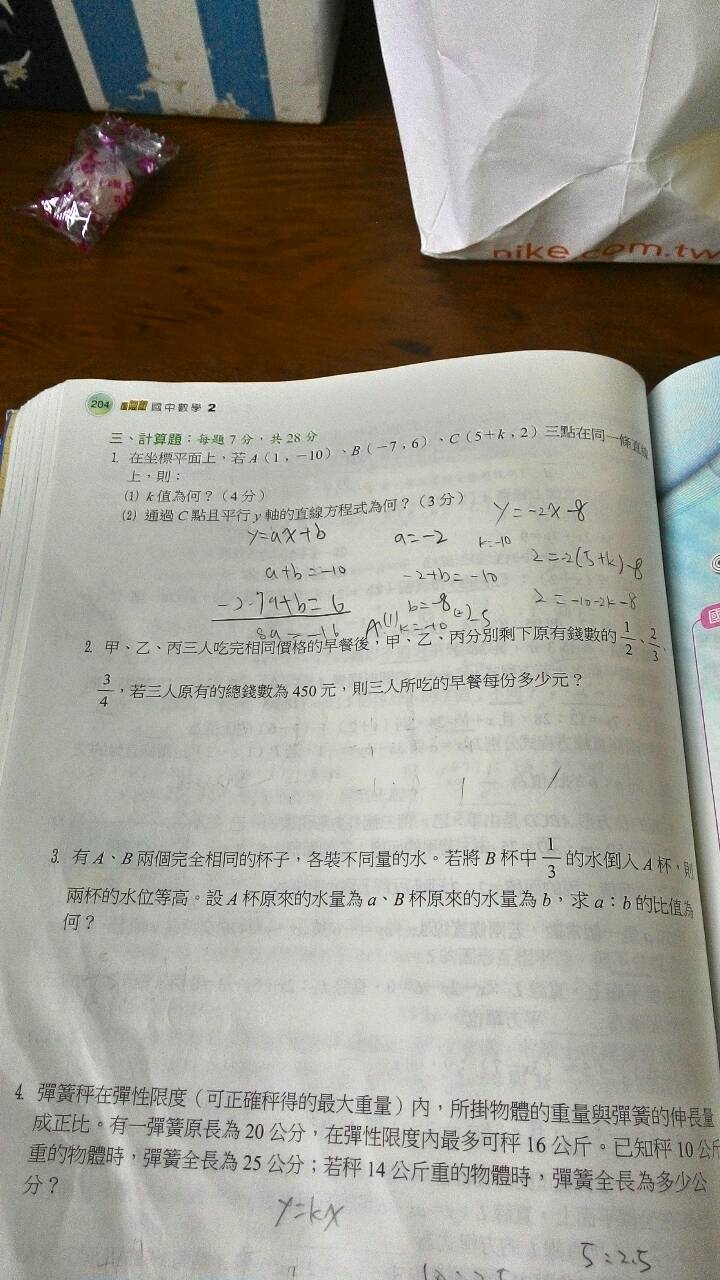 nike.com.tw
204 國中數學 2
三、計算題：每題 7 分，共 28 分
1. 在坐標平面上，若 A（1，−10）、B（−7，6）、C（5+k，2）三點在同一條直線
上，則：
⑴ k 值為何？（4 分）
⑵ 通過 C 點且平行 y 軸的直線方程式為何？（3 分）
y=-2x-8
y=ax+b
a=-2
k=-10
2=-2(5+k)-8
a+b=-10
-2+b=-10
2=-10-2k-8
-7a+b=6
b=-8
8a=-16
A:(1) k=-10 (2) -5
2. 甲、乙、丙三人吃完相同價格的早餐後，甲、乙、丙分別剩下原有錢數的 1/2、2/3、
3/4，若三人原有的總錢數為 450 元，則三人所吃的早餐每份多少元？
3. 有 A、B 兩個完全相同的杯子，各裝不同量的水。若將 B 杯中 1/3 的水倒入 A 杯，則
兩杯的水位等高。設 A 杯原來的水量為 a、B 杯原來的水量為 b，求 a：b 的比值為
何？
4. 彈簧秤在彈性限度（可正確秤得的最大重量）內，所掛物體的重量與彈簧的伸長量
成正比。有一彈簧原長為 20 公分，在彈性限度內最多可秤 16 公斤。已知秤 10 公斤
重的物體時，彈簧全長為 25 公分；若秤 14 公斤重的物體時，彈簧全長為多少公
分？
y=kx
5:2.5